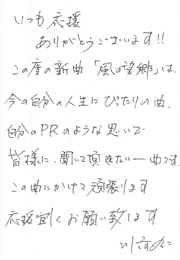 いつも応援
ありがとうございます!!
この度の新曲「風の望郷」は、
今の自分の人生にぴたりの曲、
自分のPRのような思いで
皆様に、聞いて頂きたい一曲です。
この曲にかけて頑張ります
応援宜しくお願い致します